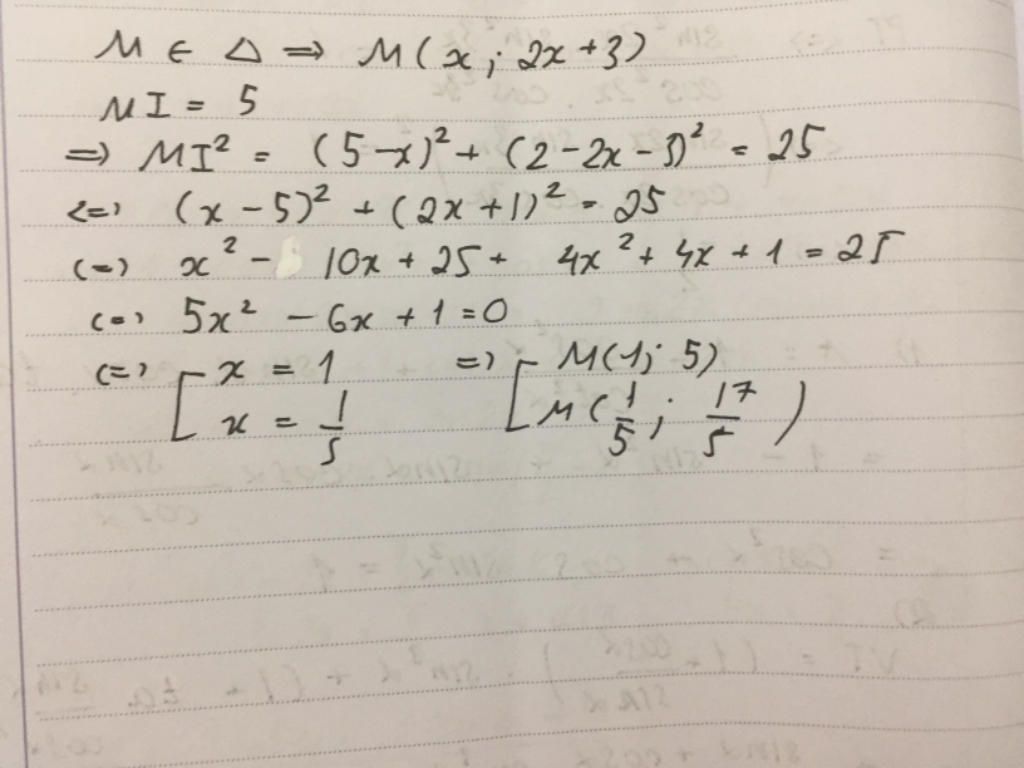 M ∈ Δ ⇒ M(x; 2x+3)
MI = 5
⇒ MI² = (5-x)² + (2-2x-3)² = 25
⇔ (x-5)² + (2x+1)² = 25
⇔ x² - 10x + 25 + 4x² + 4x + 1 = 25
⇔ 5x² - 6x + 1 = 0
⇔ [ x = 1 ⇒ [ M(1; 5)
x = 1/5 M(1/5; 17/5)